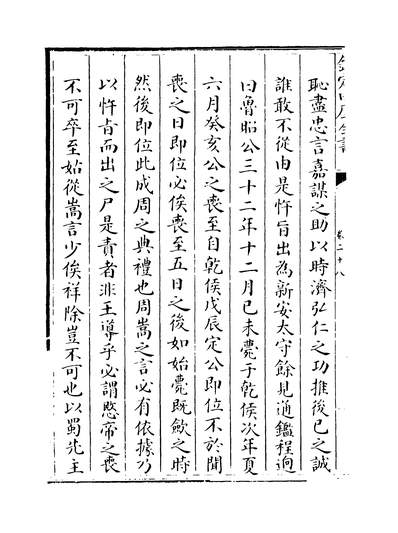 欽定四庫全書
卷二十八
恥盡忠言嘉謀之助以時濟弘仁之功推後已之誠
誰敢不從由是忤旨出為新安太守餘見通鑑程逈
曰魯昭公三十二年十二月已未薨于乾侯次年夏
六月癸亥公之喪至自乾侯戊辰定公即位不於聞
喪之日即位必俟喪至五日之後如始薨既歛之時
然後即位此成周之典禮也周嵩之言必有依據乃
以忤㫖而出之尸是責者非王導乎必謂愍帝之喪
不可卒至姑從嵩言少俟祥除豈不可也以蜀先主